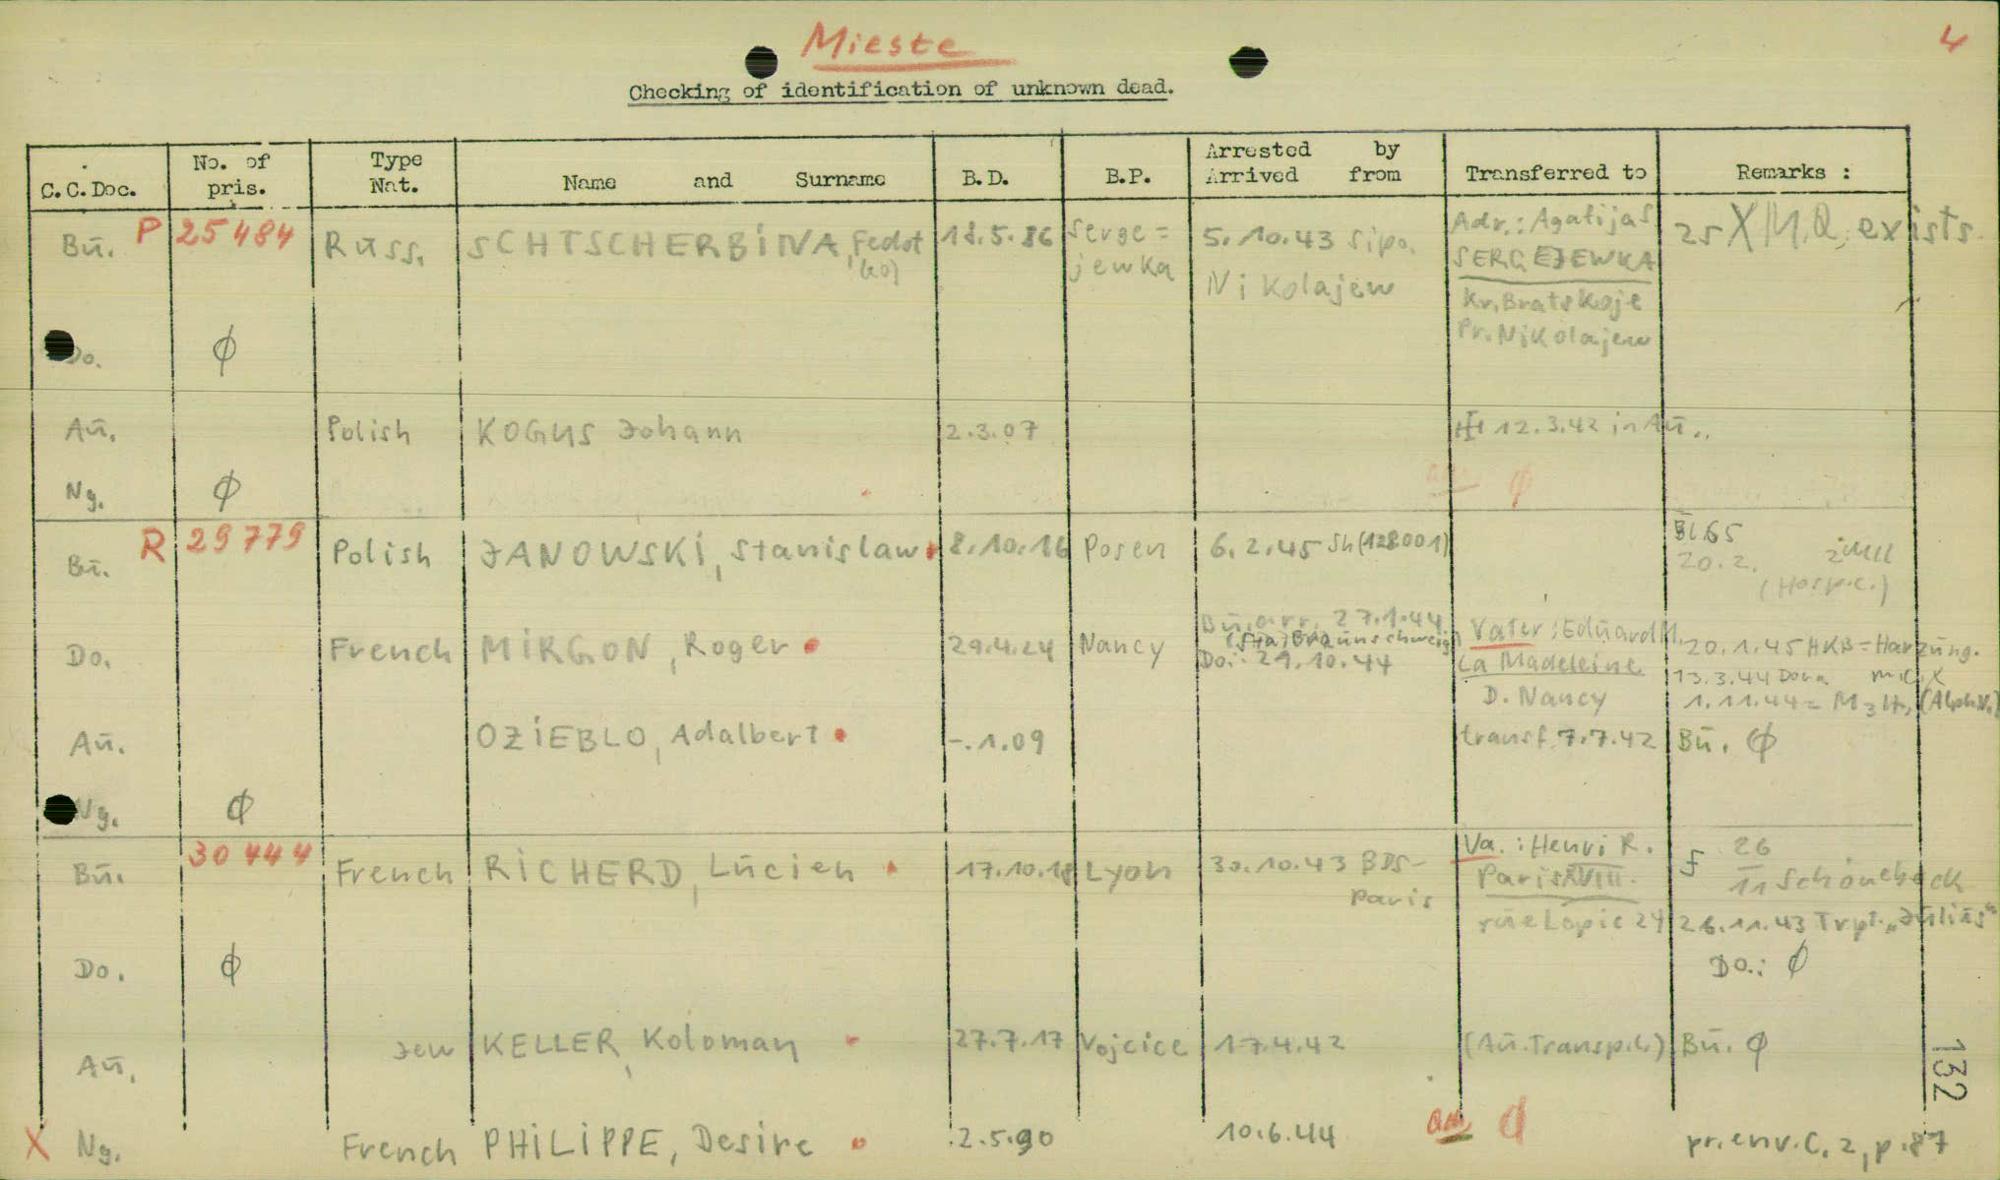 Mieste
4
Checking of identification of unknown dead.
C.C.Doc. No. of pris. Type Nat. Name and Surname B.D. B.P. Arrested by Arrived from Transferred to Remarks :
Bū. P 25484 Russ. SCHTSCHERBINA, Fedot 18.5.86 Serge= 5.10.43 Sipo. Adr.: Agatijas 25 X M.Q. exists
jewka Nikolajew SERGEJEWKA
Kr. Bratskoje
Pr. Nikolajew
Do. Ø
Aū. Polish KOGUS Johann 2.3.07 12.3.42 in Aū.
Ng. Ø Ø
Bū. R 29779 Polish JANOWSKI, Stanislaw 8.10.16 Posen 6.2.45 Sh (128001) Bl.65
20.2.
Do. French MIRGON, Roger 29.4.24 Nancy Bū. arr. 27.1.44 Vater: Eduard M. 20.1.45 HKB = Harzūng.
(Sta) Braūnschweig La Madeleine 13.3.44 Dora
Do.: 29.10.44 D. Nancy 1.11.44 =
Aū. OZIEBLO, Adalbert -.1.09 transf. 7.7.42 Bū. Ø
Ng. Ø
Bū. 30444 French RICHERD, Lūcien 17.10.18 Lyon 30.10.43 BDS- Va.: Henri R. f 26
Paris Paris XVIII. 11 Schönebeck
rūe Lopic 24 26.11.43 Trpt. „Jūliūs"
Do. Ø Do.: Ø
Aū. Jew KELLER, Koloman 27.7.17 Vojcice 17.4.42 (Aū. Transp.l.) Bū. Ø
132
X Ng. French PHILIPPE, Desire 2.5.90 10.6.44 pr.env.C. 2, p. 87